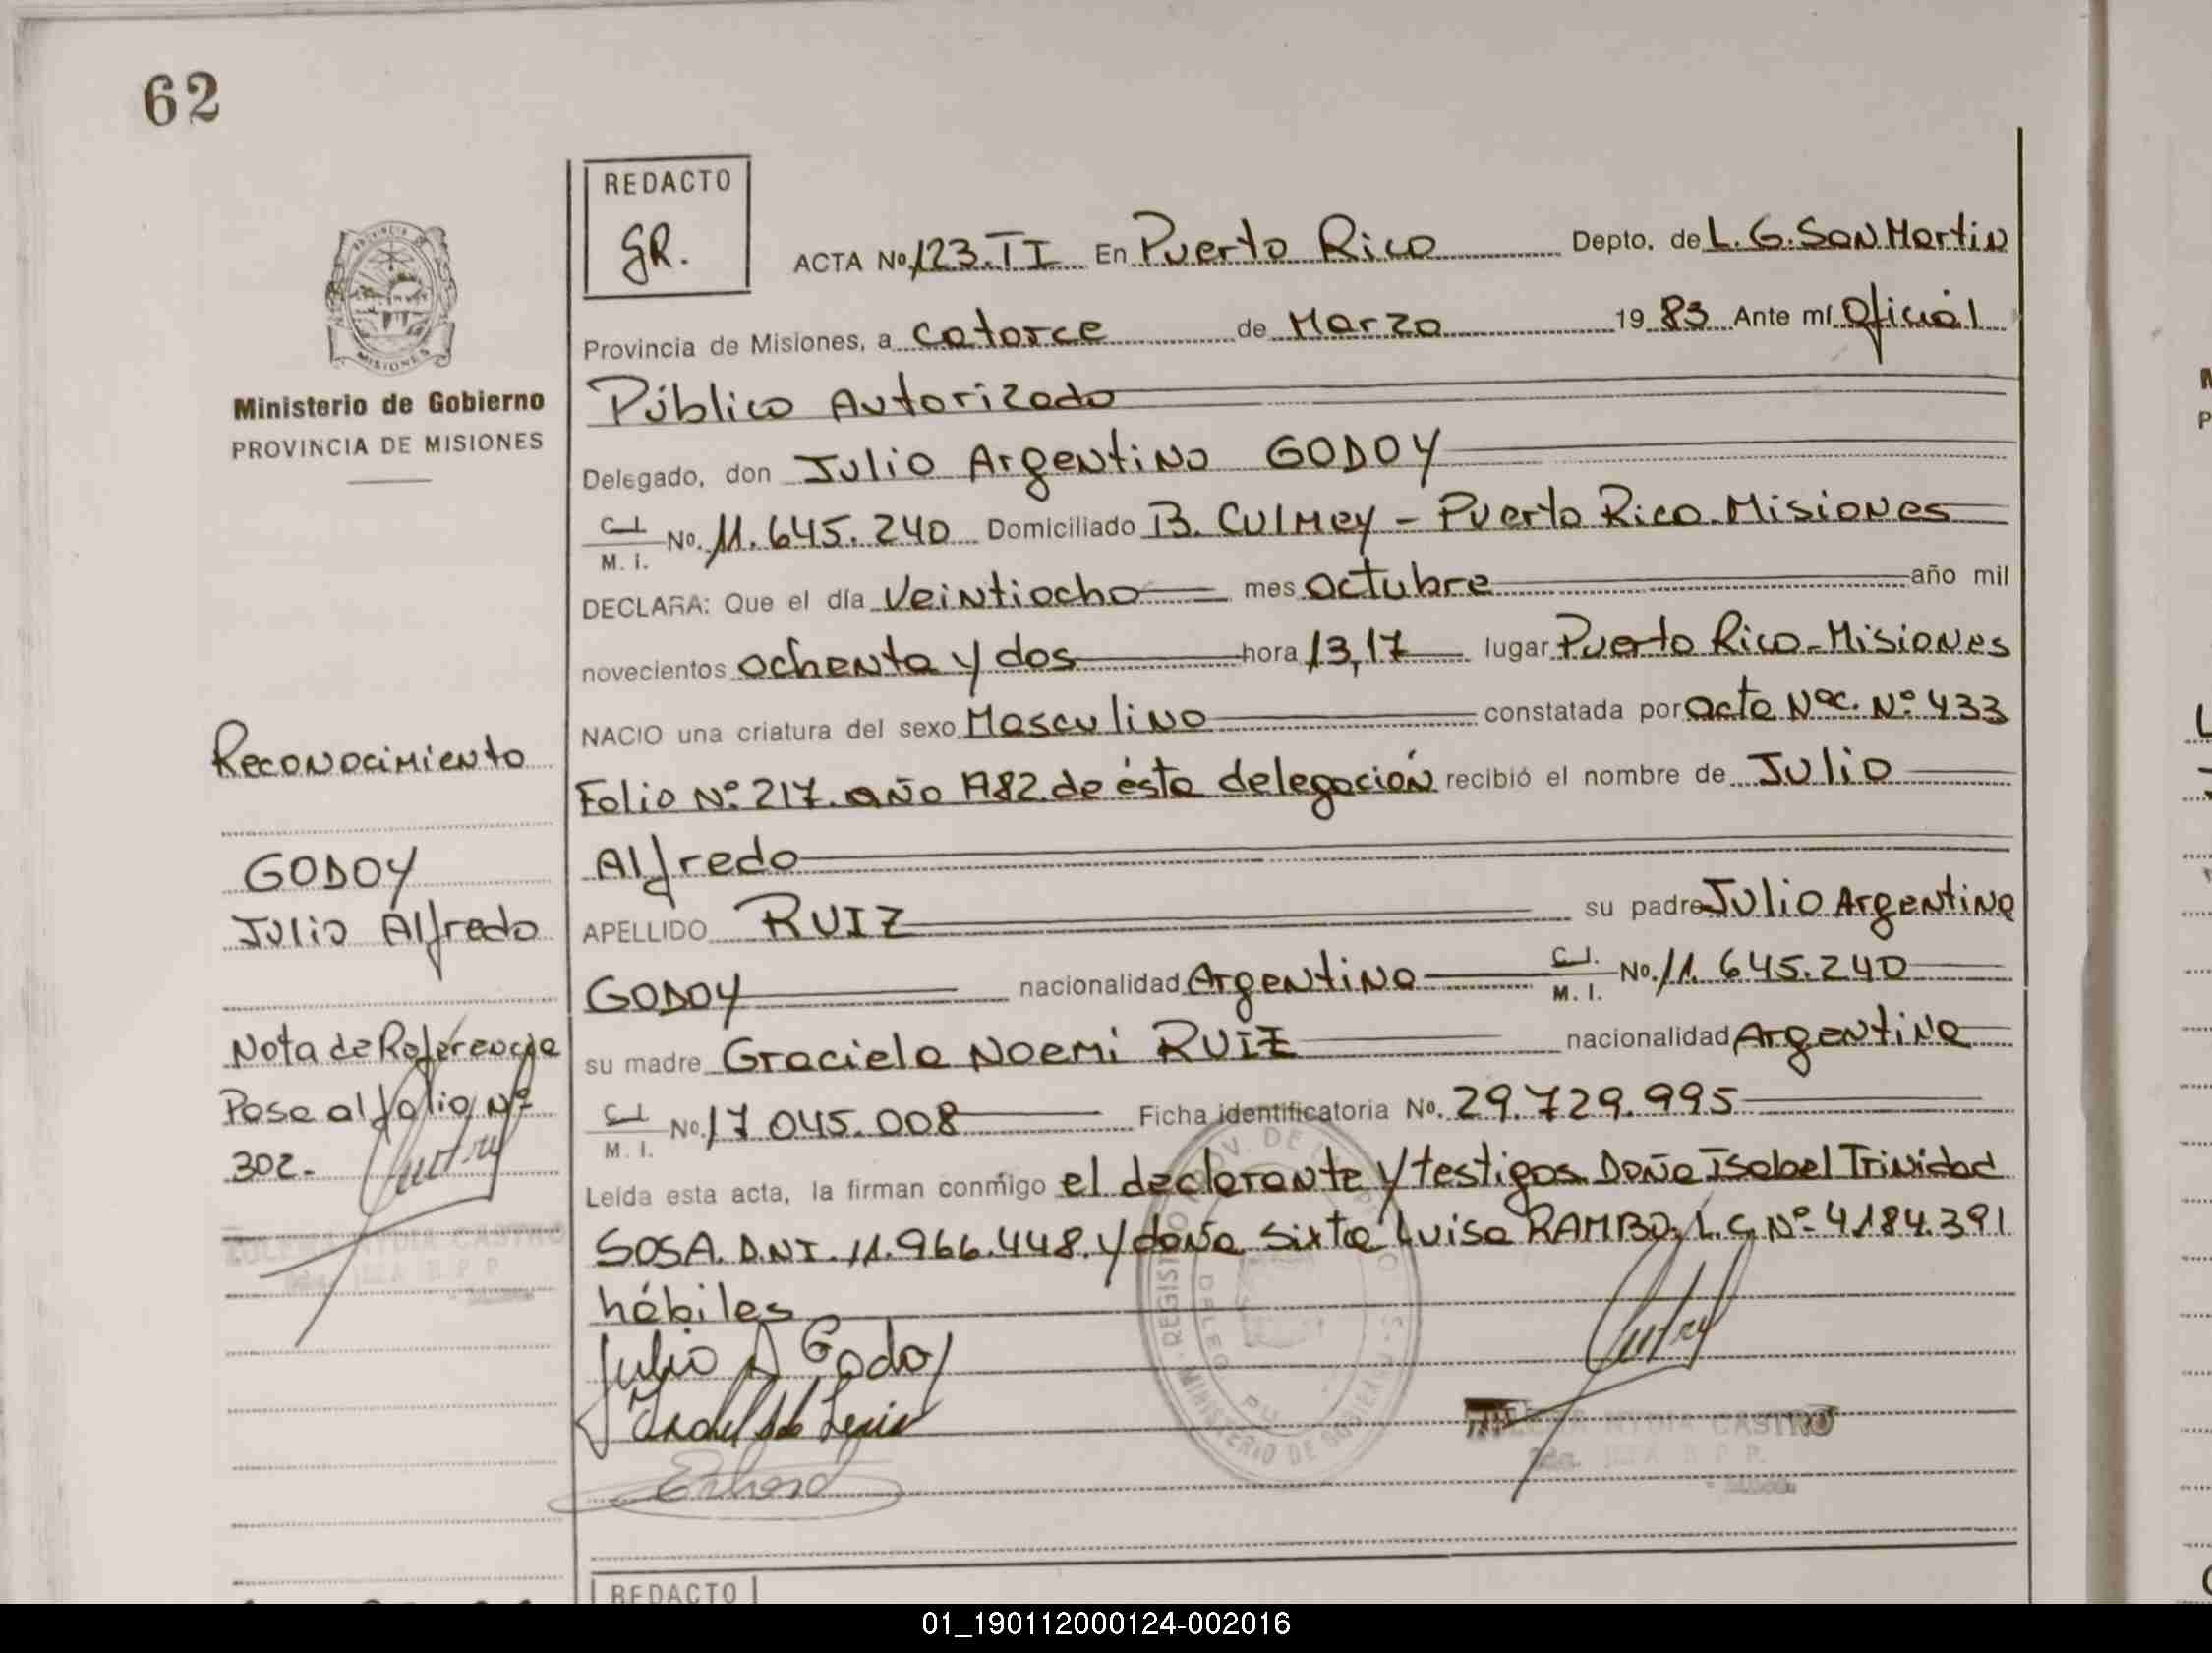 62
REDACTO
GR.
ACTA No. 123. TI En Puerto Rico Depto. de L. G. San Martin
Provincia de Misiones, a catorce de Marzo 19 83 Ante mí Oficial
Público Autorizado
Delegado, don Julio Argentino GODOY
C.I. M. I. No. 11.645.240 Domiciliado B. Culmey - Puerto Rico. Misiones
DECLARA: Que el día Veintiocho mes octubre año mil
novecientos ochenta y dos hora 13,17 lugar Puerto Rico - Misiones
NACIO una criatura del sexo Masculino constatada por acta Nac. Nº 433
Folio Nº 217. año 1982. de ésta delegación recibió el nombre de Julio
Alfredo
APELLIDO RUIZ su padre Julio Argentino
GODOY nacionalidad Argentino C.I. M. I. No. 11.645.240
su madre Graciela Noemi RUIZ nacionalidad Argentina
C.I. M. I. No. 17 045.008 Ficha identificatoria No. 29.729.995
Leída esta acta, la firman conmigo el declarante y testigos Doña Isabel Trinidad
SOSA. D.N.I. 11.966.448. y doña Sixta Luisa RAMBO. L.C. Nº 4.184.391
hábiles
Julio A Godoy
PROVINCIA DE
MISIONES
Ministerio de Gobierno
PROVINCIA DE MISIONES
Reconocimiento
GODOY
Julio Alfredo
Nota de Referencia
Pase al folio Nº
302-
NYDIA CASTRO
REGISTRO PROV. DE
MINISTERIO DE GOBIERNO
DELEG
NYDIA CASTRO
REDACTO
01_190112000124-002016